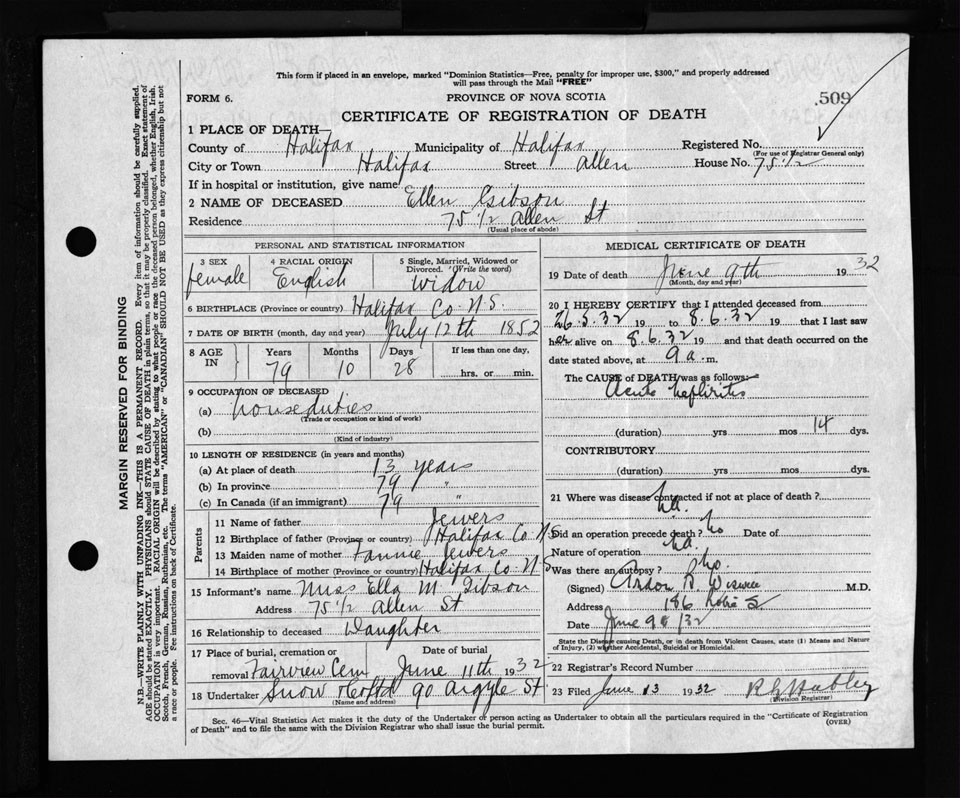 This form if placed in an envelope, marked "Dominion Statistics—Free, penalty for improper use, $300," and properly addressed
will pass through the Mail "FREE"
FORM 6.
PROVINCE OF NOVA SCOTIA
509
CERTIFICATE OF REGISTRATION OF DEATH
1 PLACE OF DEATH—
County of Halifax Municipality of Halifax Registered No.
(For use of Registrar General only)
City or Town Halifax Street Allen House No. 75 1/2
If in hospital or institution, give name
2 NAME OF DECEASED Ellen Gibson
Residence 75 1/2 Allen St
(Usual place of abode)
PERSONAL AND STATISTICAL INFORMATION
3 SEX
female
4 RACIAL ORIGIN
English
5 Single, Married, Widowed or
Divorced. (Write the word)
Widow
6 BIRTHPLACE (Province or country) Halifax Co N.S.
7 DATE OF BIRTH (month, day and year) July 12th 1852
8 AGE IN
Years Months Days If less than one day,
79 10 28 hrs. or min.
9 OCCUPATION OF DECEASED
(a) house duties
(Trade or occupation or kind of work)
(b)
(Kind of industry)
10 LENGTH OF RESIDENCE (in years and months)
(a) At place of death 13 years
(b) In province 79 "
(c) In Canada (if an immigrant) 79 "
Parents
11 Name of father Jewers
12 Birthplace of father (Province or country) Halifax Co N S
13 Maiden name of mother Fannie Jewers
14 Birthplace of mother (Province or country) Halifax Co N S
15 Informant's name Miss Ella M Gibson
Address 75 1/2 Allen St
16 Relationship to deceased Daughter
17 Place of burial, cremation or Date of burial
removal Fairview Cem June 11th 1932
18 Undertaker Snow & Co Ltd 90 Argyle St
(Name and address)
MEDICAL CERTIFICATE OF DEATH
19 Date of death June 9th 1932
(Month, day and year)
20 I HEREBY CERTIFY that I attended deceased from
26.5.32 19 to 8.6.32 19 that I last saw
her alive on 8.6.32 19 and that death occurred on the
date stated above, at 9 a .m.
The CAUSE of DEATH was as follows:
Acute Nephritis
(duration) yrs mos 14 dys.
CONTRIBUTORY
(duration) yrs mos dys.
21 Where was disease contracted if not at place of death?
na.
Did an operation precede death? no Date of
Nature of operation na.
Was there an autopsy? no.
(Signed) Ardon B M.D.
Address 186 Robie S
Date June 9th /32
State the Disease causing Death, or in death from Violent Causes, state (1) Means and Nature
of Injury, (2) whether Accidental, Suicidal or Homicidal.
22 Registrar's Record Number
23 Filed June 13 1932
(Division Registrar)
Sec. 46—Vital Statistics Act makes it the duty of the Undertaker or person acting as Undertaker to obtain all the particulars required in the "Certificate of Registration
of Death" and to file the same with the Division Registrar who shall issue the burial permit.
(OVER)
MARGIN RESERVED FOR BINDING
N.B.—WRITE PLAINLY WITH UNFADING INK—THIS IS A PERMANENT RECORD. Every item of information should be carefully supplied.
AGE should be stated EXACTLY. PHYSICIANS should STATE CAUSE OF DEATH in plain terms, so that it may be properly classified. Exact statement of
OCCUPATION is very important. RACIAL ORIGIN will be described by stating to what people or race the deceased person belonged, whether English, Irish,
Scotch, French, German, Russian, Ruthenian, etc. The terms "AMERICAN" or "CANADIAN" SHOULD NOT BE USED as they express citizenship but not
a race or people. See instructions on back of Certificate.